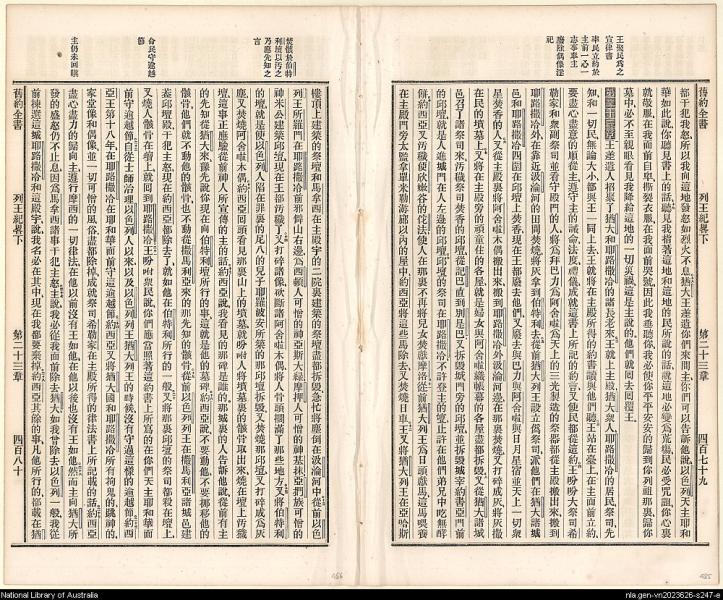 王聚民爲之
宣律書
率民立約於
主前一心一
志事奉主
廢除偶像淫
祀
舊約全書 列王紀畧下 第二十三章 四百七十九
都干犯我怒所以我向這地發怒如烈火不息猶大王差遣你們來問主你們可以告訴他說以色列天主耶和
華如此說你聽見書上的話聽見我指著這地和這地的居民所說的話說這地必變爲荒塲民必受咒詛你心裏
就敬服在我面前自卑撕裂衣服在我面前哭號因此我垂聽你我必使你平平安安的歸到你列祖那裏歸你
墓中必不至親眼看見我降給這地的一切災禍這是主說的他們就回去回覆王
第二十三章 王差遣人招聚了猶大和耶路撒冷的諸長老來王就上主殿猶大衆人耶路撒冷的居民祭司先
知和一切民無論大小都與王一同上去王就將在主殿所得的約書讀與他們聽王站在臺上在主面前立約
要盡心盡意的順從主遵守主的誡命法度禮儀成就這書上所記的約言又使民都從這約王吩咐大祭司希
勒家和衆副祭司並看守殿門的人將爲拜巴力爲阿舍喇爲天上的三光製造的祭器都從主殿搬出來搬到
耶路撒冷外在靠近汲淪河的田間焚燒將灰拿到伯特利去從前猶大列王設立爲祭司派他們在猶大諸城
邑和耶路撒冷四圍在邱壇上焚香現在王都廢去他們又廢去與巴力與阿舍喇與日月星宿並天上一切衆
星焚香的人又從主殿裏將阿舍喇木偶搬出來搬到耶路撒冷外汲淪河邊在那裏焚燒又打碎成灰將灰撒
在民的墳墓上又將在主殿旁的頑童住的各屋就是婦女與阿舍喇織帳幕的各屋盡都拆毀又從猶大諸城
邑召了諸祭司來汚穢祭司焚香的邱壇從記巴直到別是巴又拆毀城門旁的邱壇並拆毀城宰約書亞門前
的邱壇就是人進城門在人左邊的邱壇邱壇的祭司在耶路撒冷不許登主的壇止許在他們弟兄中吃無酵
餅約西亞又汚穢使欣嫩谷的佗法使人在那裏不再將兒女焚獻摩洛從前猶大列王爲日頭獻馬這馬喂養
在主殿門旁太監拿單米勒游廊以內的屋中約西亞將這些馬除去又焚燒日車王又將猶大列王在亞哈斯
焚骸於伯特
利壇以汚之
乃應先知之
言
命民守逾越
節
主仍未回嗔
樓頂上建築的祭壇和馬拿西在主殿宇的二院裏建築的祭壇盡都拆毀急忙將塵倒在汲淪河中從前以色
列王所羅門在耶路撒冷前邪僻山右邊爲西頓人可憎的神亞斯大綠摩押人可憎的神基抹亞捫族可憎的
神米公建築邱壇現在王都汚穢了又打碎諸像砍斷諸阿舍喇木偶將人骨頭擱滿了那些地方又將伯特利
的壇就是使以色列人陷在罪裏的尼八的兒子耶羅破安所築的那邱壇拆毀又焚燒那邱壇又打碎成爲灰
塵又焚燒阿舍喇木偶約西亞回頭看見那裏山上的墳墓就吩咐人將墳墓裏的骸骨取出來燒在壇上汚穢
壇這事正應驗從前神人所宣傳的主的話約西亞說我看見的那碑是誰的那城裏的人告訴他說從前有主
的先知從猶大來豫先說你現在向伯特利壇所行的事這就是他的墓碑約西亞說不要動他不要挪移他的
骸骨他們就不動他的骸骨也不動從撒馬利亞來的那先知的骸骨從前以色列列王在撒馬利亞諸城邑建
葢邱壇殿干犯主怒現在約西亞都除去了就如他在伯特利所行的一般又將那裏邱壇的祭司都殺在壇上
又燒人骸骨在壇上就回到耶路撒冷王吩咐衆民說你們應當照著這約書上所寫的在你們天主耶和華面
前守逾越節自從士師治理以色列人以來以及以色列列王猶大列王的時候沒有守過這樣的逾越節約西
亞王第十八年在耶路撒冷在耶和華面前守這逾越節約西亞又將猶大國和耶路撒冷所有拘鬼的跳神的
家堂像和偶像並一切可憎的風俗盡都除掉成就祭司希勒家在主殿所得的律法書上所記載的話約西亞
盡心盡力的歸向主遵行摩西的一切律法在他以前沒有王如他在他以後也沒有王如他然而主向猶大所
發的盛怒仍不止息因爲馬拿西諸事干犯主怒主說我必從我面前除去猶大如我曾除去以色列一般我從
前棟選這城耶路撒冷和這殿宇說我名必在其中現在我都要棄掉約西亞其餘的事凡他所行的都載在猶
舊約全書 列王紀畧下 第二十三章 四百八十
166
165
National Library of Australia
nla.gen-vn2023626-s247-e